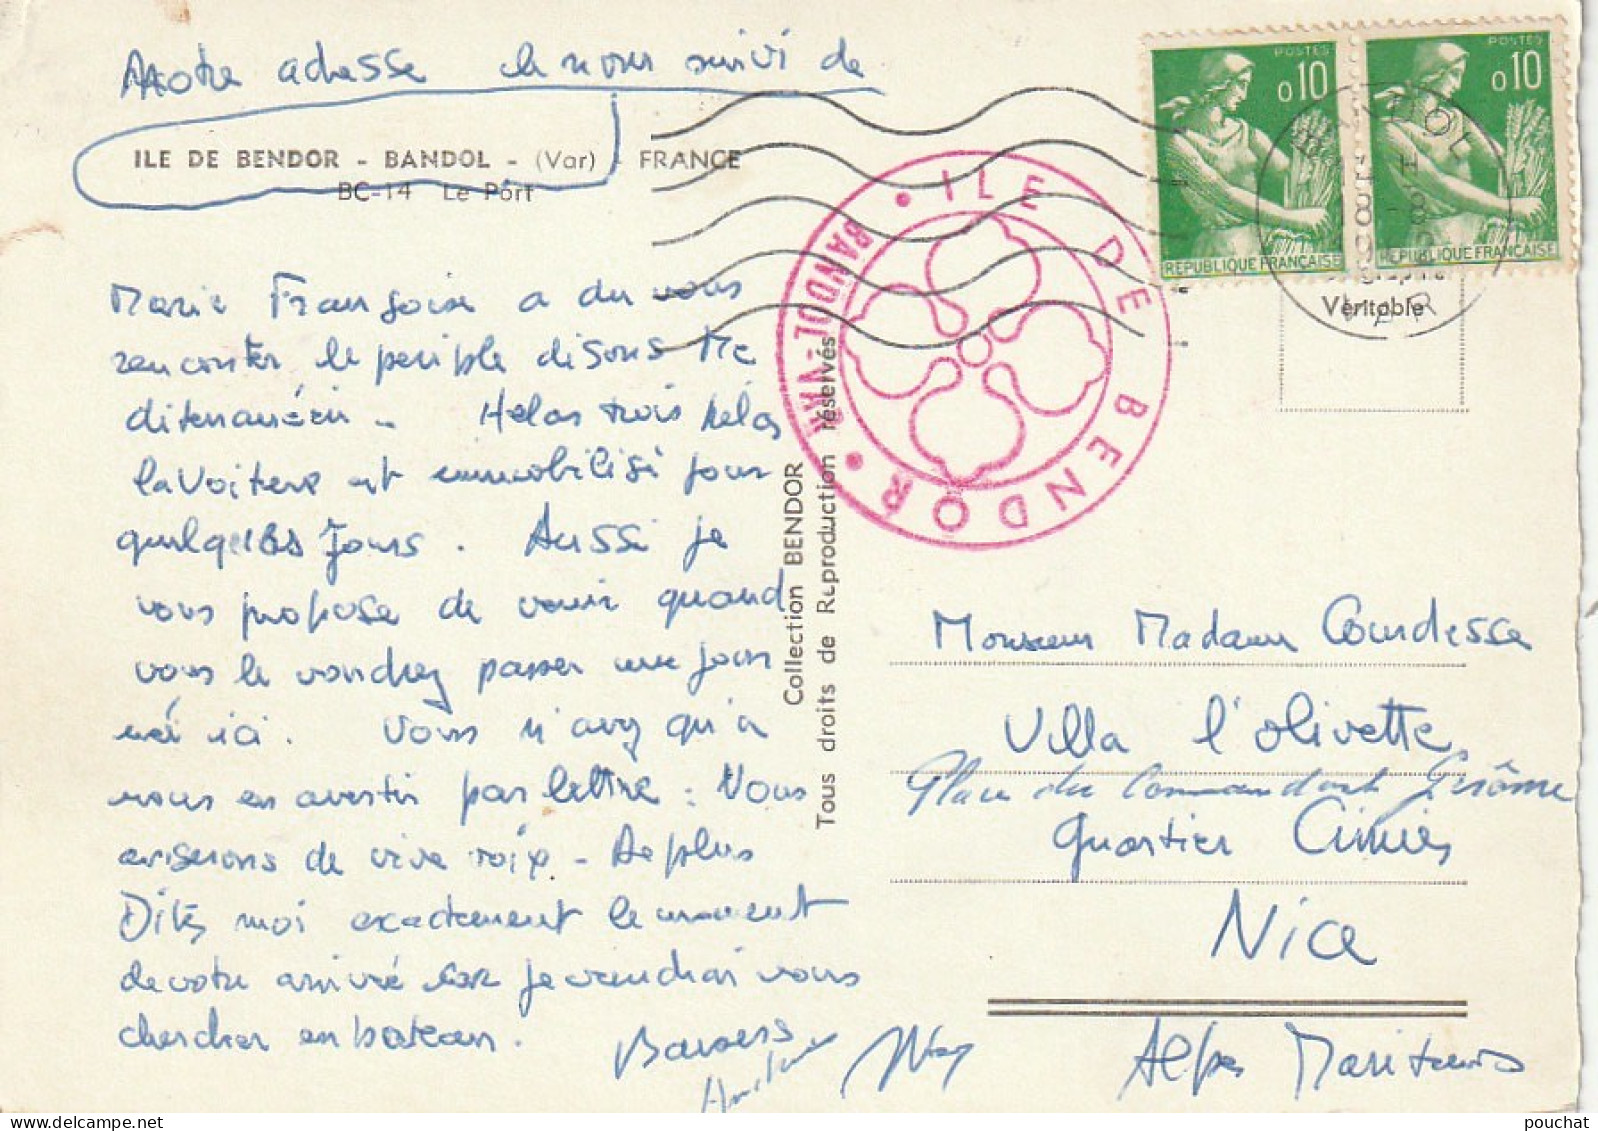 Notre adresse le nom suivi de
ILE DE BENDOR - BANDOL - (Var) - FRANCE
BC-14 Le Port
Marie Françoise a du vous
raconter le periple disons Me
diterranéen - Helas trois helas
la Voiture est immobilisé pour
quelques Jours. Aussi je
vous propose de venir quand
vous le voudrez passer une jour
née ici. Vous n'avez qu'a
nous en avertir par lettre : Nous
aviserons de vive voix - De plus
Dites moi exactement le moment
de votre arrivée car je viendrai vous
chercher en bateau.
Baisers
Collection BENDOR
Tous droits de Reproduction réservés
ILE DE BENDOR
BANDOL - VAR
POSTES
0,10
REPUBLIQUE FRANÇAISE
POSTES
0,10
REPUBLIQUE FRANÇAISE
BANDOL
VAR
Véritable
Monsieur Madame Courdesse
Villa l'olivette
Place du Commandant Gérôme
Quartier Cimiès
Nice
Alpes Maritimes
pouchat